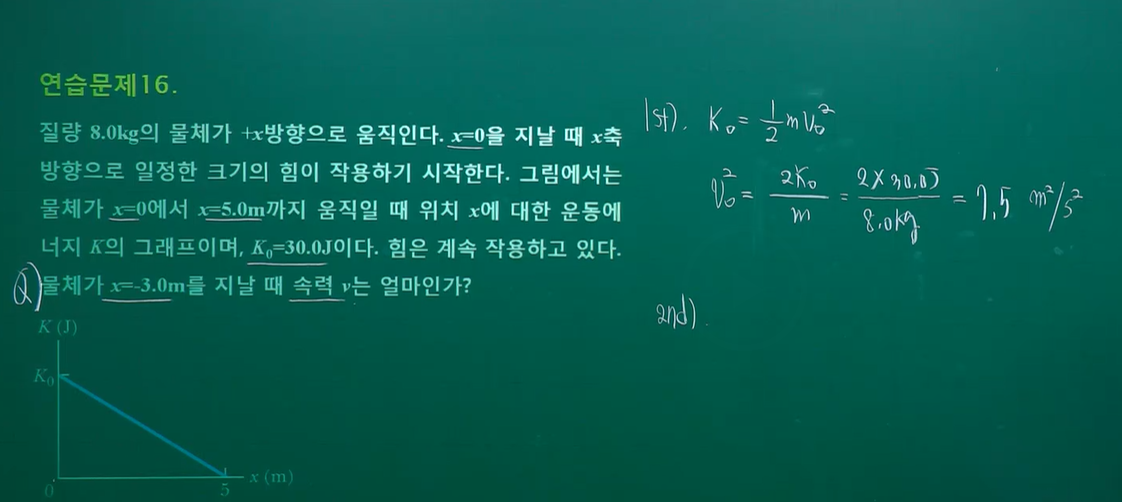 연습문제16.
질량 8.0kg의 물체가 +x방향으로 움직인다. x=0을 지날 때 x축
방향으로 일정한 크기의 힘이 작용하기 시작한다. 그림에서는
물체가 x=0에서 x=5.0m까지 움직일 때 위치 x에 대한 운동에
너지 K의 그래프이며, K₀=30.0J이다. 힘은 계속 작용하고 있다.
Q) 물체가 x=-3.0m를 지날 때 속력 v는 얼마인가?
K (J)
K₀
0
5
x (m)
1st). K₀ = 1/2 m v₀²
v₀² = 2K₀/m = 2×30.0J/8.0kg = 7.5 m²/s²
2nd).